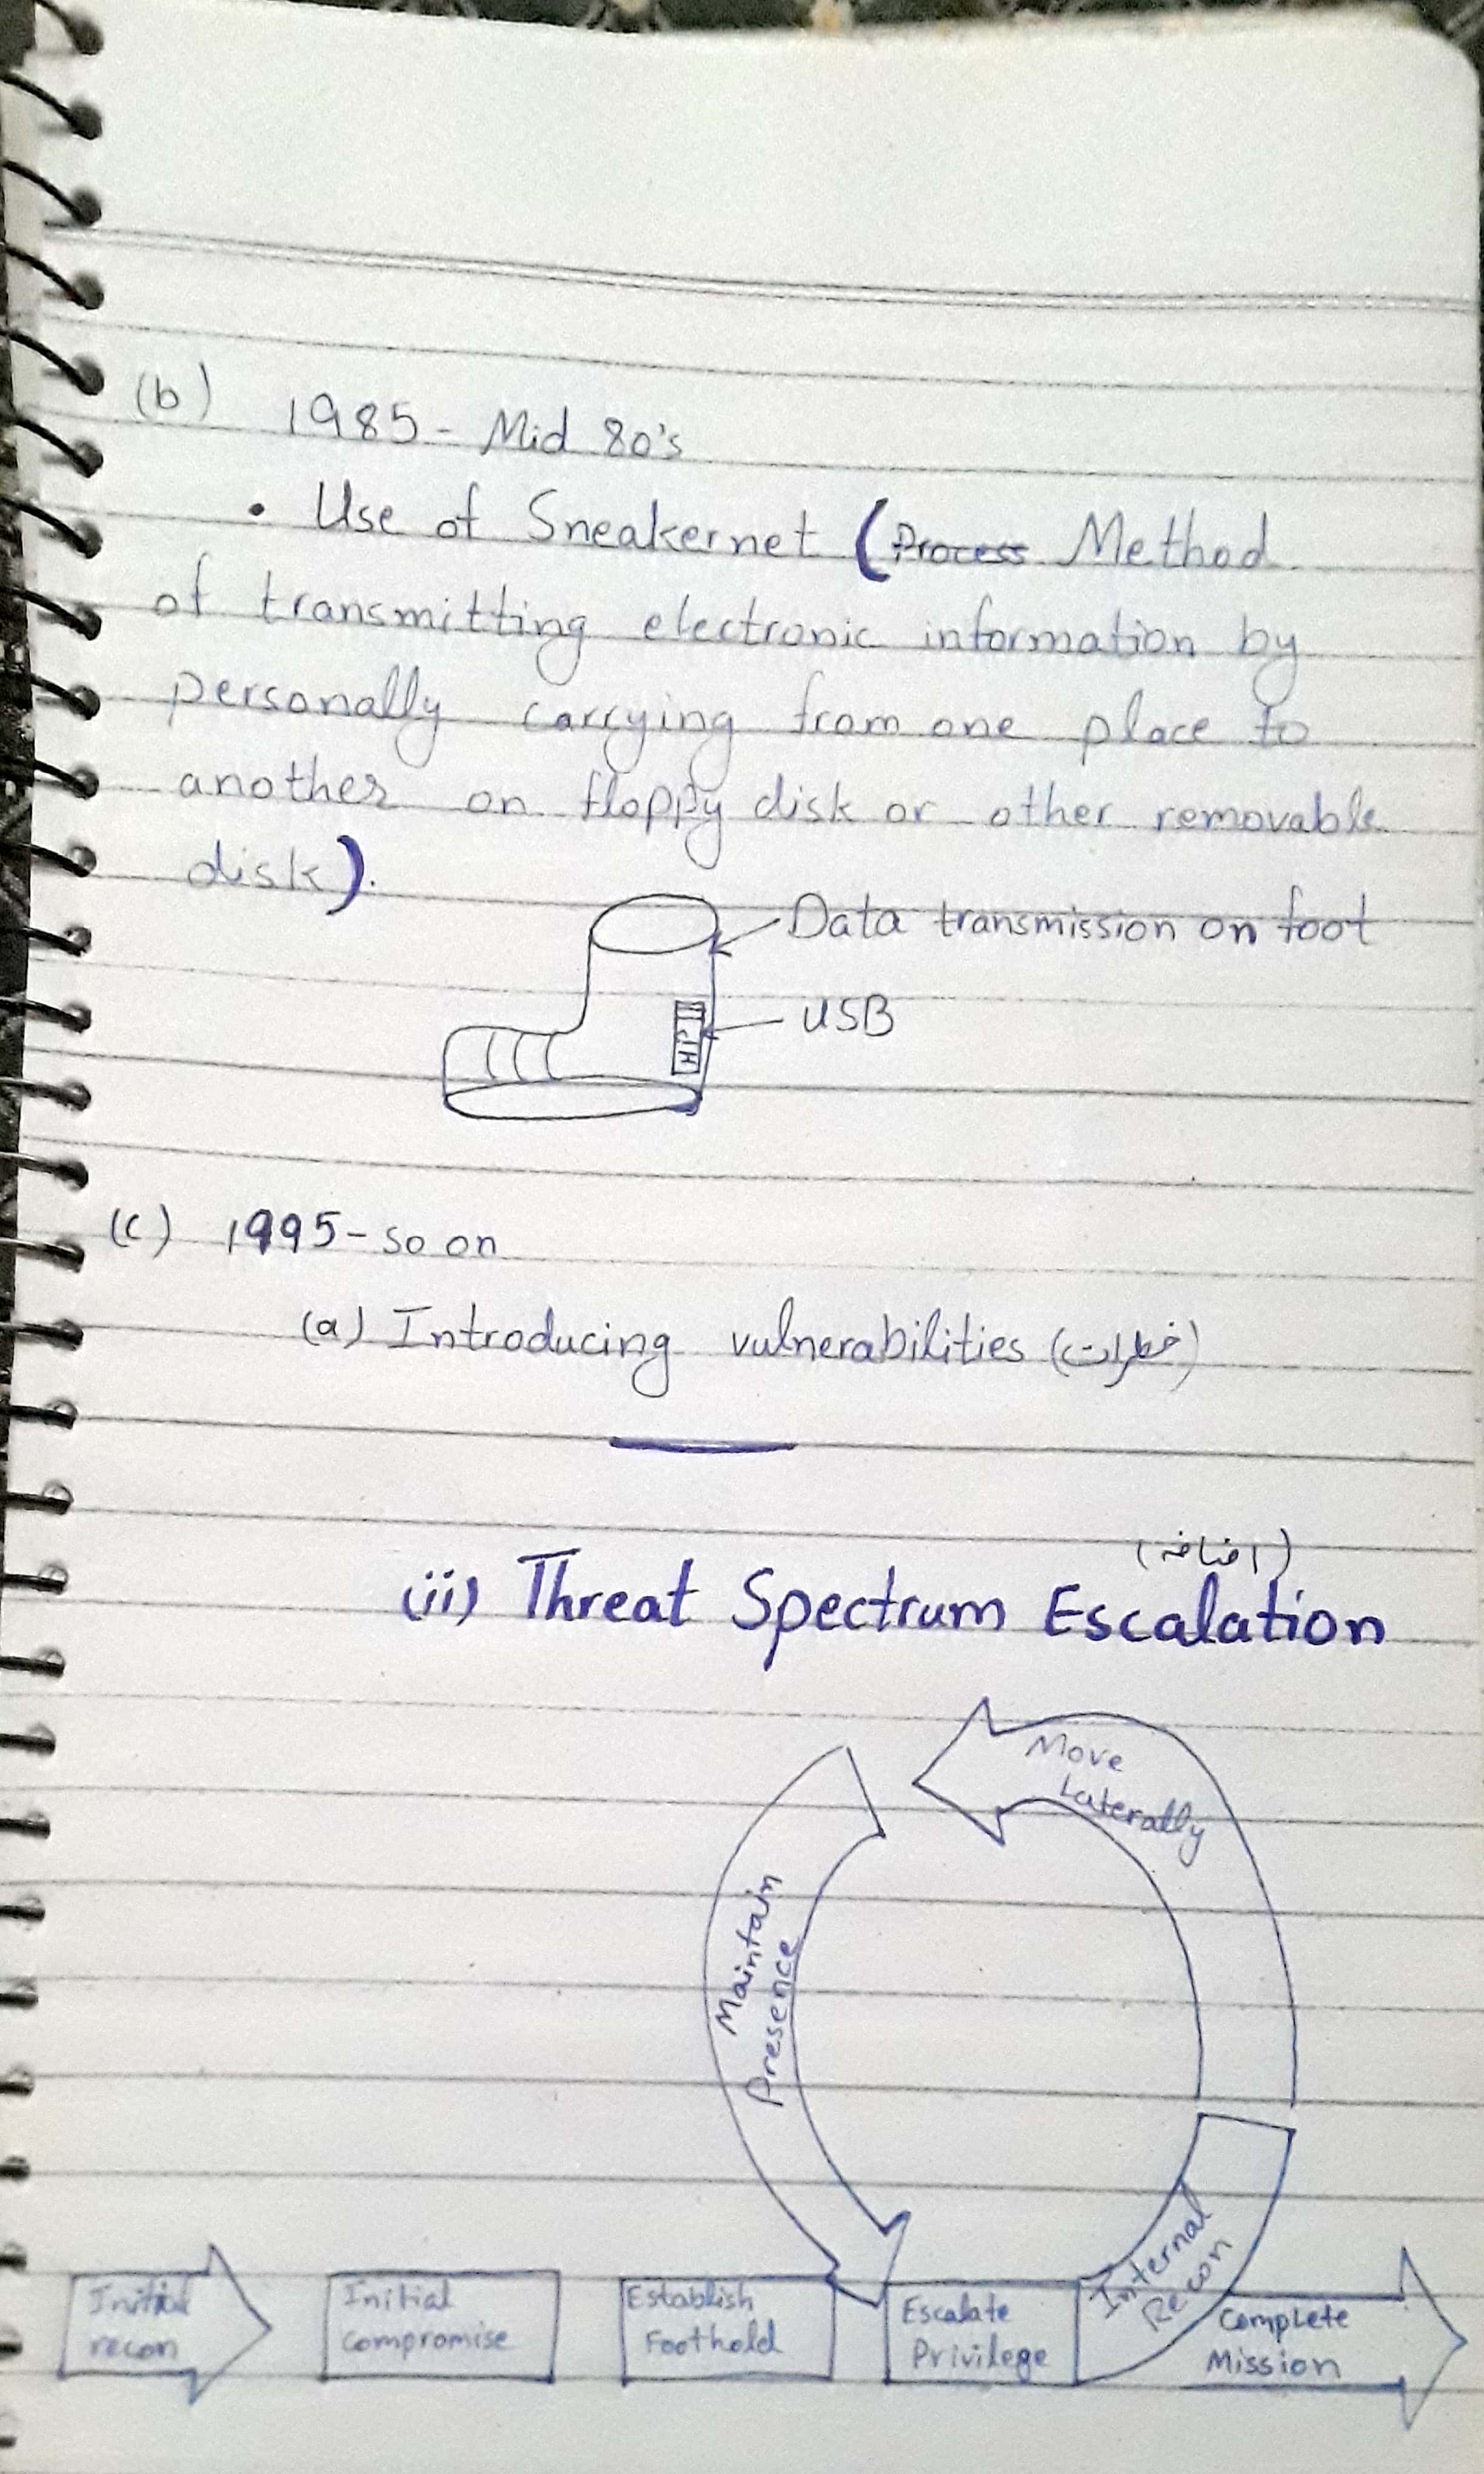 (b) 1985 - Mid 80's
• Use of Sneakernet (Process Method
of transmitting electronic information by
personally carrying from one place to
another on floppy disk or other removable
disk).
Data transmission on foot
USB
(c) 1995 - so on
(a) Introducing vulnerabilities (خطرات)
(اضافہ)
(ii) Threat Spectrum Escalation
Move
Laterally
Maintain
Presence
Internal
Recon
Initial
recon
Initial
compromise
Establish
Foothold
Escalate
Privilege
Complete
Mission